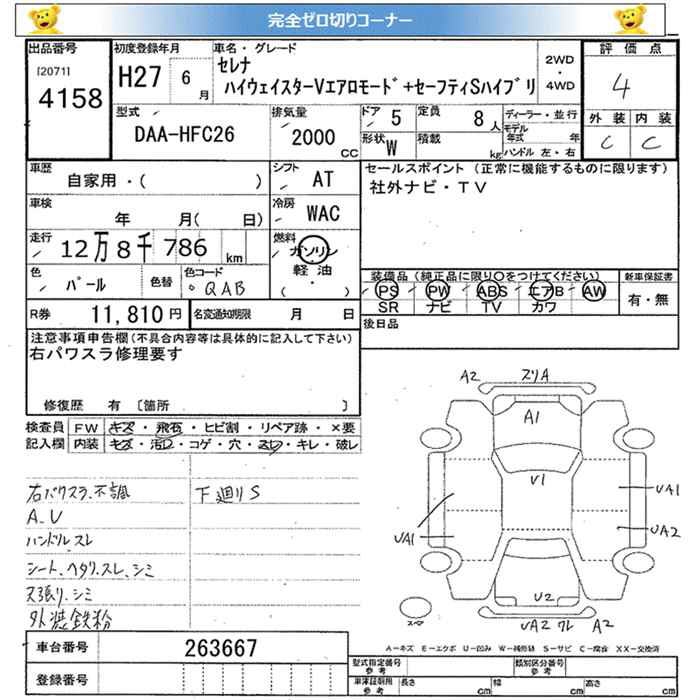 完全ゼロ切りコーナー
出品番号
[2071]
4158
初度登録年月
H27 6 月
車名・グレード
セレナ
ハイウェイスターVエアロモード+セーフティSハイブリ
2WD
・
4WD
評価点
4
外装 内装
C C
型式
DAA-HFC26
排気量
2000
CC
ドア 5
定員 8 人
形状 W
積載 kg
ディーラー・並行
モデル年式 年
ハンドル 左・右
車歴
自家用・( )
シフト
AT
セールスポイント (正常に機能するものに限ります)
社外ナビ・TV
車検
年 月( 日)
冷房
WAC
走行
12万8千786 km
燃料
ガソリン
軽油
( ・ )
色
パール
色替
色コード
QAB
装備品 (純正品に限り○をつけてください)
PS PW ABS エアB AW
SR ナビ TV カワ
新車保証書
有・無
R券 11,810 円
名変通知期限 月 日
後日品
注意事項申告欄(不具合内容等は具体的に記入して下さい)
右パワスラ修理要す
修復歴 有 〔箇所 〕
検査員
記入欄
FW キズ・飛石・ヒビ割・リペア跡・×要
内装 キズ・汚レ・コゲ・穴・スレ・キレ・破レ
右パワスラ、不調
下廻りS
A、U
ハンドル、スレ
シート、ヘタリ、スレ、シミ
天張り、シミ
外装鉄粉
A2 スリA
A1
V1
UA1
UA1
UA2
U2
UA2 ワレ A2
車台番号 263667
登録番号
A-キズ E-エクボ U-凹み W-補修跡 S-サビ C-腐食 XX-交換済
型式指定番号
参考
類別区分番号
参考
車庫証明用
参考
長さ cm
幅 cm
高さ cm